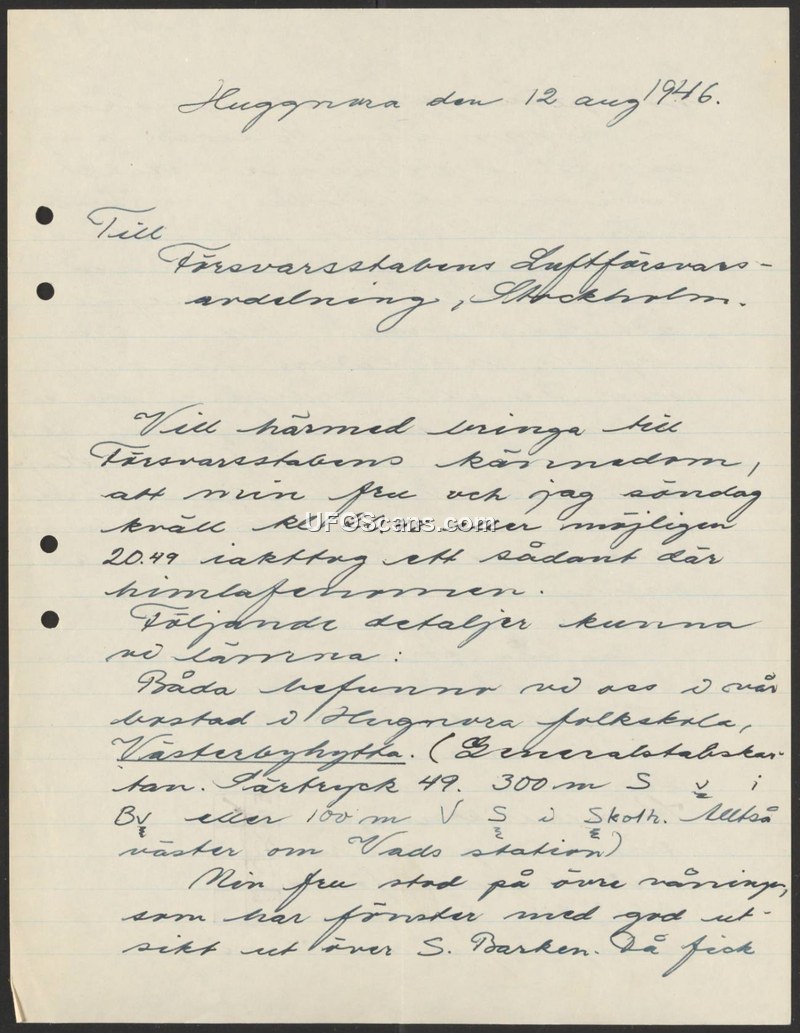 Huggnora den 12 aug 1946.
Till
Försvarsstabens Luftförsvars-
avdelning, Stockholm.
Vill härmed bringa till
Försvarsstabens kännedom,
att min fru och jag söndag
kväll kl. eller möjligen
20.49 iakttog ett sådant där
himlafenomen.
Följande detaljer kunna
vi lämna:
Båda befunno vi oss i vår
bostad i Hugnora folkskola,
Västerbyhytta. (Generalstabskar-
tan. Särtryck 49. 300 m S v i
Bv eller 100 m V S i Skolh. Alltså
väster om Vads station)
Min fru stod på övre våningen,
som har fönster med god ut-
sikt ut över S. Barken. Då fick
UFOScans.com